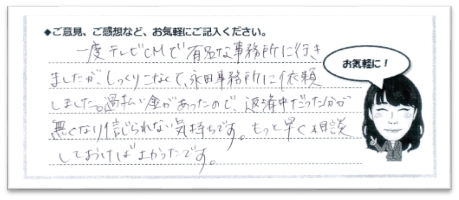 ◆ご意見、ご感想など、お気軽にご記入ください。
一度テレビCMで有名な事務所に行き
ましたが、しっくりこなくて、永田事務所に依頼
しました。過払い金があったので、返済中だった分が
無くなり信じられない気持ちです。もっと早く相談
しておけばよかったです。
お気軽に！